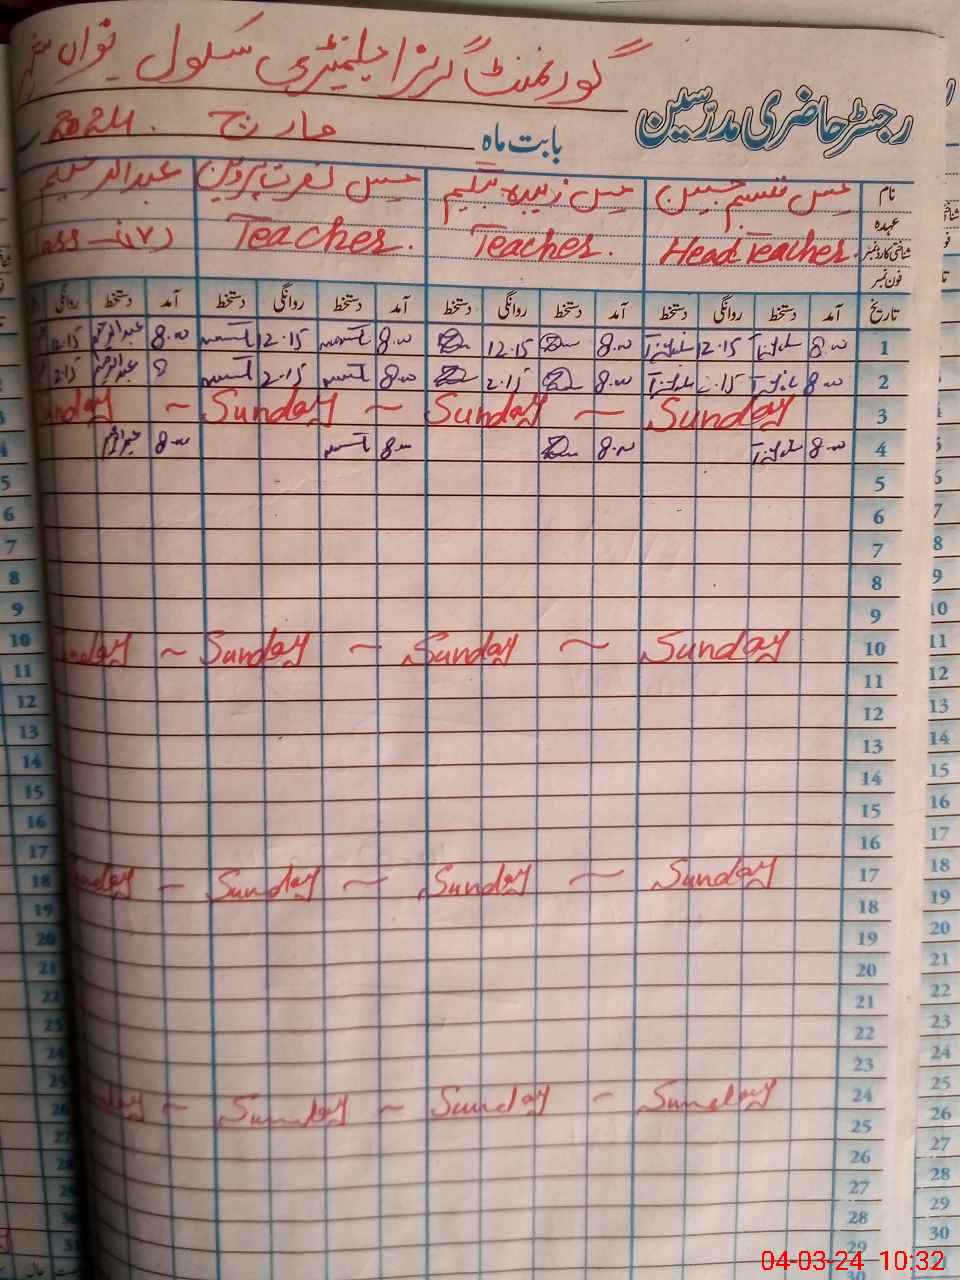 گورنمنٹ گرلز ایلیمنٹری سکول نواں
رجسٹر حاضری مدرسین
بابت ماہ مارچ 2024
نام مس تبسم جبین مس زبیدہ بیگم مس نصرت پروین عبدالرحیم
عہدہ
شناختی کارڈ نمبر Head Teacher. Teacher. Teacher. Class-(IV)
فون نمبر
تاریخ آمد دستخط روانگی دستخط آمد دستخط روانگی دستخط آمد دستخط روانگی دستخط آمد دستخط روانگی
1 8.00 12.15 8.00 12.15 8.00 12.15 8.00 عبدالرحیم 12.15
2 8.00 2.15 8.00 2.15 8.00 2.15 8 عبدالرحیم 2.15
3 Sunday ~ Sunday ~ Sunday ~ Sunday
4 8.00 8.00 8.00 8.00
5
6
7
8
9
10 Sunday ~ Sunday ~ Sunday ~ Sunday
11
12
13
14
15
16
17 Sunday ~ Sunday ~ Sunday ~ Sunday
18
19
20
21
22
23
24 Sunday - Sunday ~ Sunday ~ Sunday
25
26
27
28
29
30
04-03-24 10:32